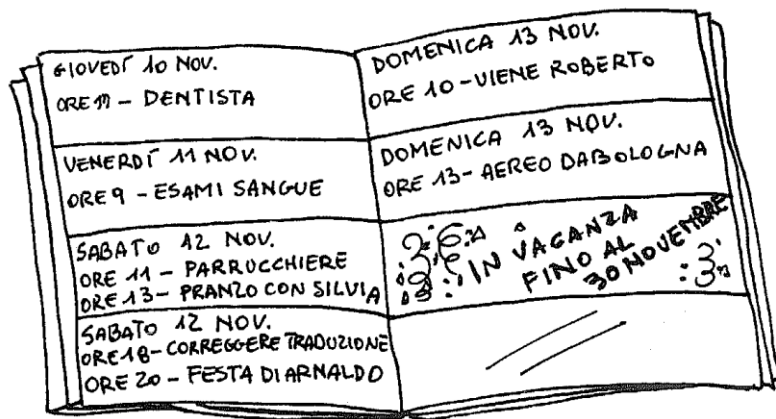 GIOVEDÌ 10 NOV.
ORE - DENTISTA
VENERDÌ 11 NOV.
ORE 9 - ESAMI SANGUE
SABATO 12 NOV.
ORE 11 - PARRUCCHIERE
ORE 13 - PRANZO CON SILVIA
SABATO 12 NOV.
ORE 18 - CORREGGERE TRADUZIONE
ORE 20 - FESTA DI ARNALDO
DOMENICA 13 NOV.
ORE 10 - VIENE ROBERTO
DOMENICA 13 NOV.
ORE 13 - AEREO DA BOLOGNA
IN VACANZA
FINO AL
30 NOVEMBRE